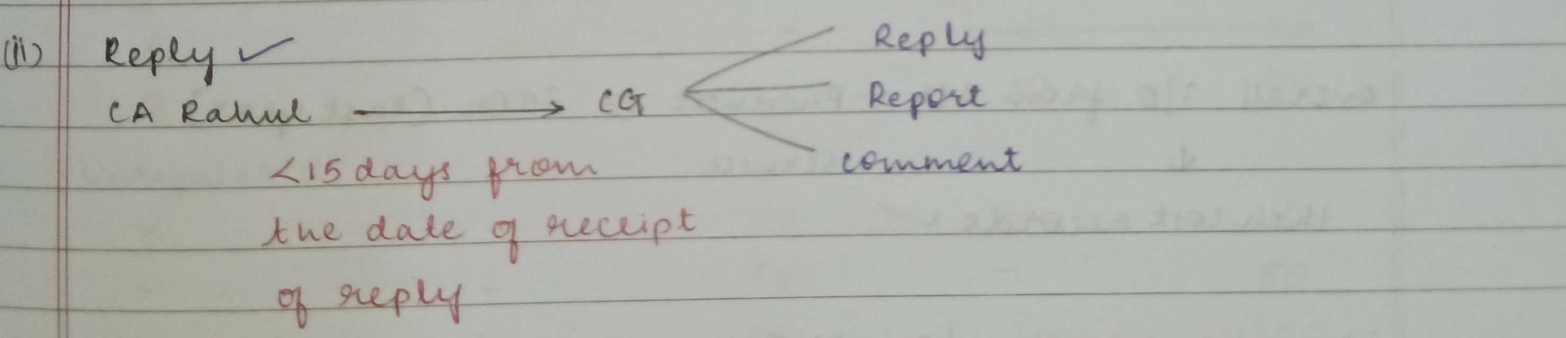 (ii) Reply ✓
CA Rahul → CG
Reply
Report
comment
<15 days from
the date of receipt
of reply